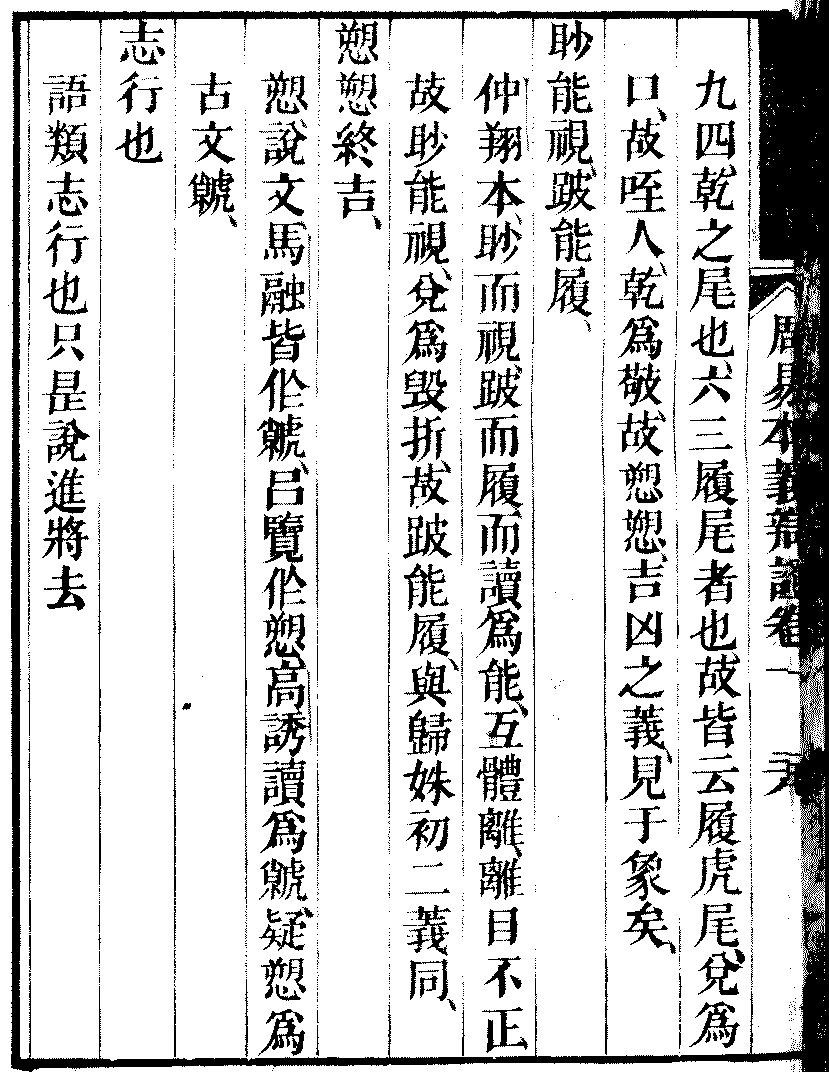 周易本義辯證卷一
九四、乾之尾也、六三履尾者也、故皆云履虎尾、兌爲
口、故咥人、乾爲敬、故愬愬、吉凶之義、見于象矣、
眇能視、跛能履、
仲翔本、眇而視、跛而履、而讀爲能、互體離、離目不正
故眇能視、兌爲毀折、故跛能履、與歸妹初二義同、
愬愬終吉、
愬、說文、馬融皆作虩、呂覽作愬、高誘讀爲虩、疑愬爲
古文虩、
志行也
語類志行也只是說進將去